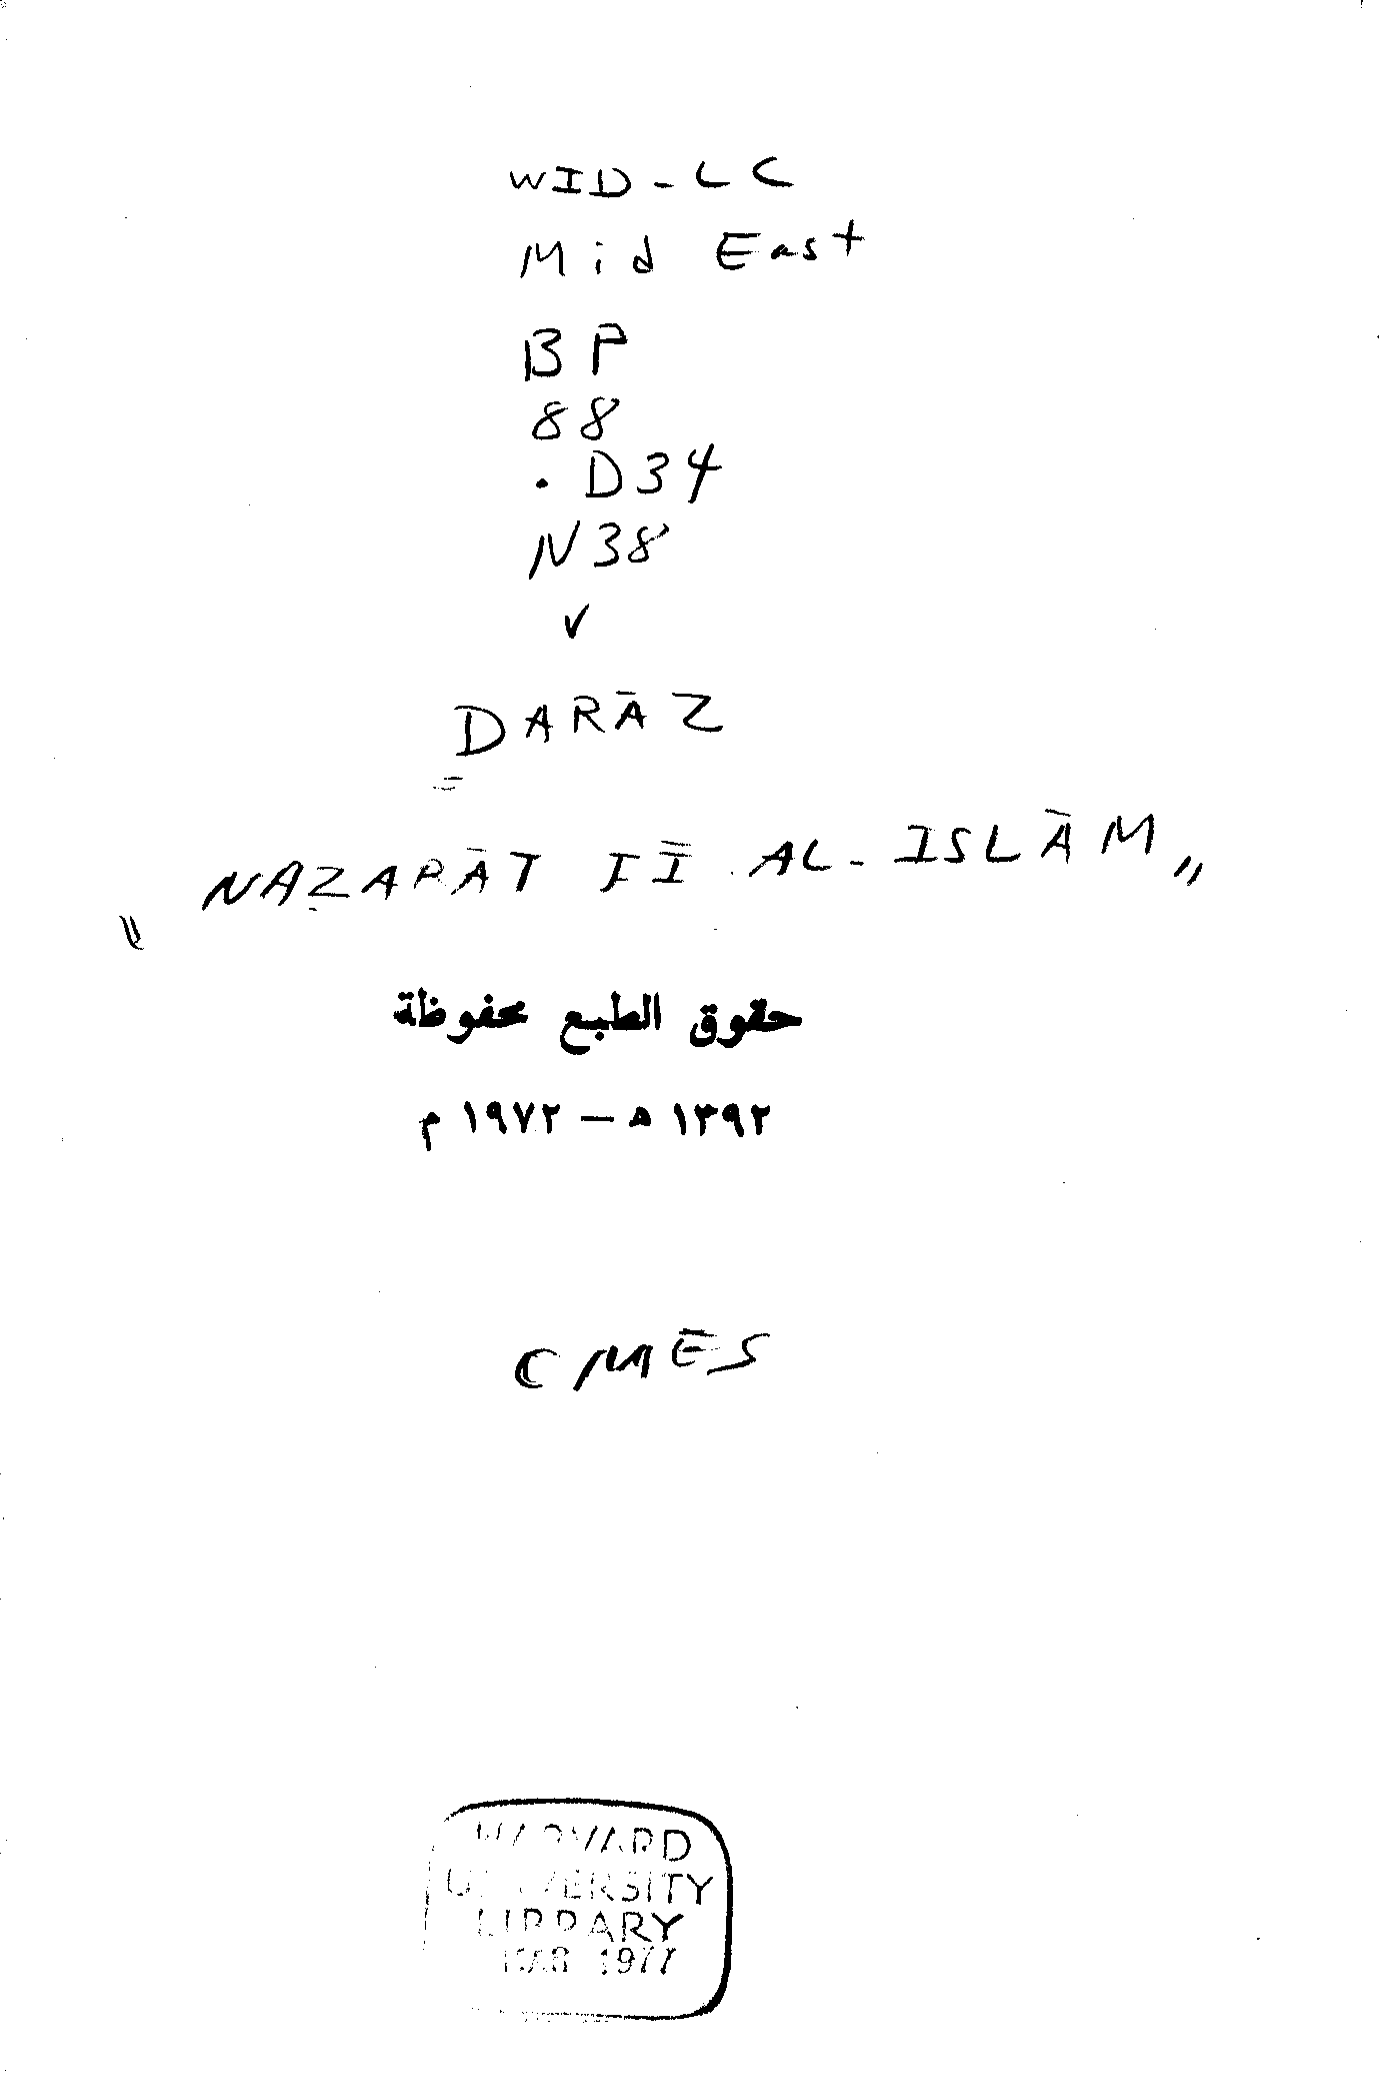 WID-LC
Mid East
BP
88
.D34
N38
✓
DARĀZ
"NAẒARĀT FĪ AL-ISLĀM"
حقوق الطبع محفوظة
١٣٩٢ ه — ١٩٧٢ م
CMES
HARVARD
UNIVERSITY
LIBRARY
MAR 1977